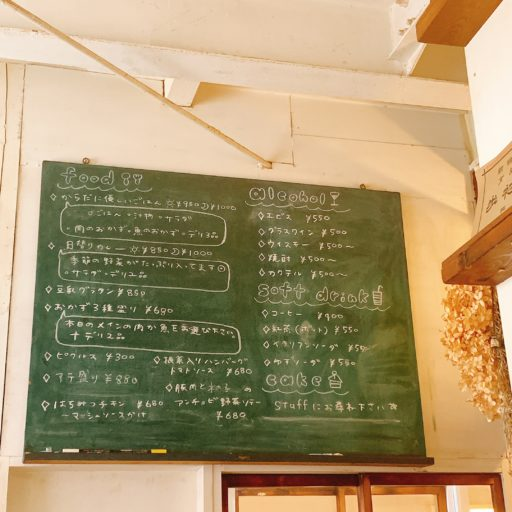 food
◇からだに優しいごはん ※¥950 ☽¥1000
○ごはん ○汁物 ○サラダ
○肉のおかず・魚のおかず ○デリ2品
◇日替りカレー ※¥950 ☽¥1000
季節の野菜がたっぷり入ってます
○サラダ ○デリ2品
◇豆乳グラタン ¥850
◇おかず3種盛り ¥680
本日のメインの肉か魚をお選び下さい
+デリ2品
◇ピクルス ¥300
◇アテ盛り ¥880
◇はちみつチキン ¥680
〜マーシュソースがけ
◇根菜入りハンバーグ
トマトソース ¥680
◇豚肉と
アンチョビ野菜ソテー
¥680
alcohol
◇エビス ¥550
◇グラスワイン ¥500
◇ウイスキー ¥500〜
◇焼酎 ¥500〜
◇カクテル ¥500〜
soft drink
◇コーヒー ¥400
◇紅茶(ポット) ¥550
◇イタリアンソーダ
◇ゆずソーダ ¥550
cake
staffにお尋ね下さい